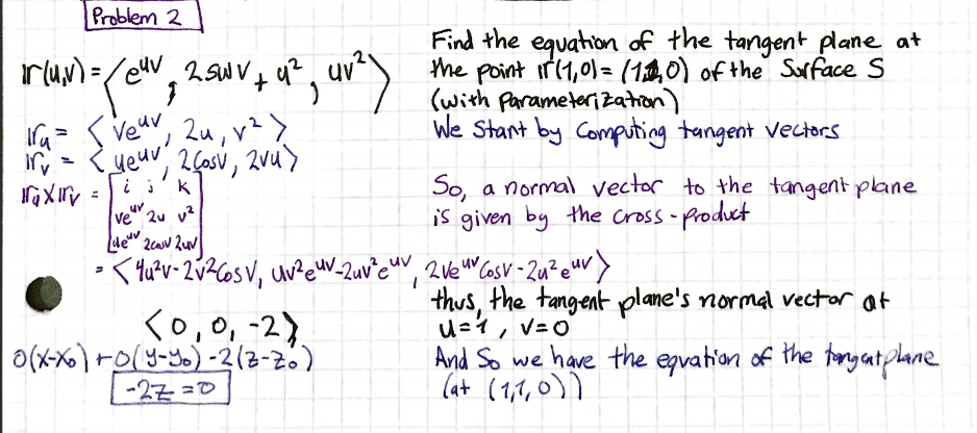 Problem 2
Find the equation of the tangent plane at
r(u,v) = <e^{uv}, 2sinv + u², uv²>
the point r(1,0) = (1,1,0) of the Surface S
(with Parameterization)
r_u = <ve^{uv}, 2u, v²>
We Start by Computing tangent Vectors
r_v = <ue^{uv}, 2cosv, 2vu>
r_u x r_v = [i j k
ve^{uv} 2u v²
ue^{uv} 2cosv 2uv]
So, a normal vector to the tangent plane
is given by the cross-product
= <4u²v - 2v²cosv, uv²e^{uv} - 2uv²e^{uv}, 2ve^{uv}cosv - 2u²e^{uv}>
thus, the tangent plane's normal vector at
<0, 0, -2>
u=1, v=0
0(x-x₀) + 0(y-y₀) - 2(z-z₀)
And So we have the equation of the tangent plane
-2z = 0
(at (1,1,0))